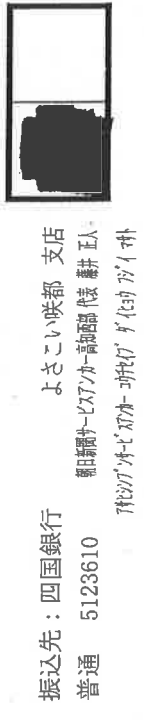 振込先：四国銀行　よさこい咲都 支店
普通　5123610　朝日新聞サービスアンカー高知西部 代表 藤井 正人
ｱｻﾋｼﾝﾌﾞﾝｻｰﾋﾞｽｱﾝｶｰ ｺｳﾁｾｲﾌﾞ ﾀﾞｲﾋｮｳ ﾌｼﾞｲ ﾏｻﾄ